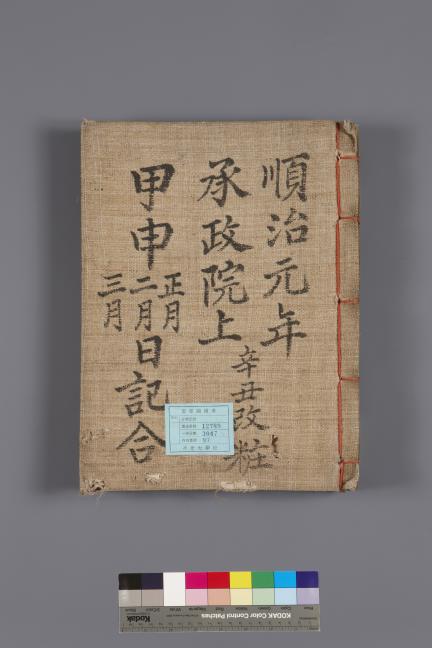 順治元年
承政院上
辛丑改粧
甲申
正月
二月
三月
日記合
12788
3047
97
Kodak
KODAK Color Control Patches